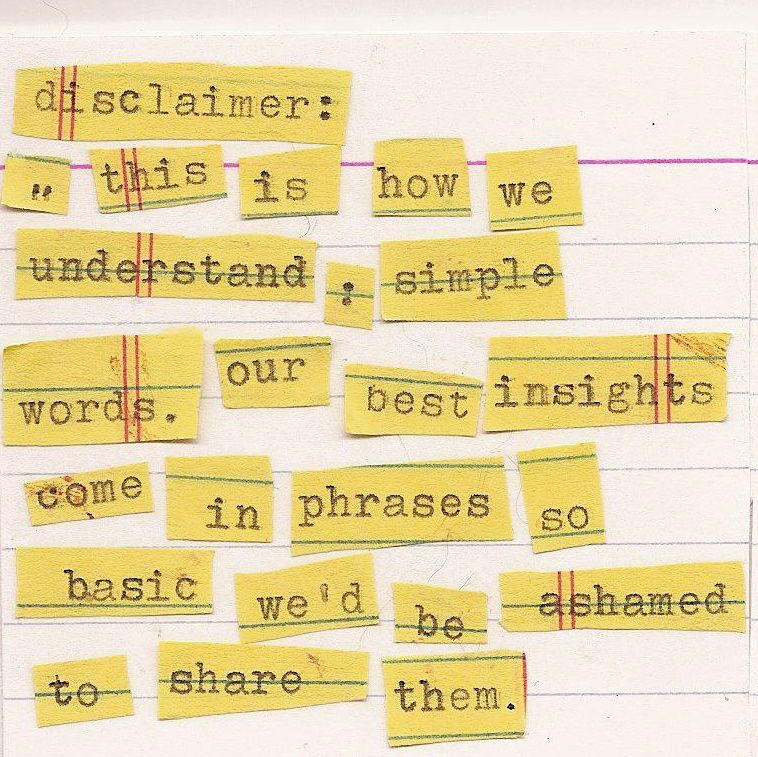 disclaimer:
" this is how we
understand : simple
words. our best insights
come in phrases so
basic we'd be ashamed
to share them.